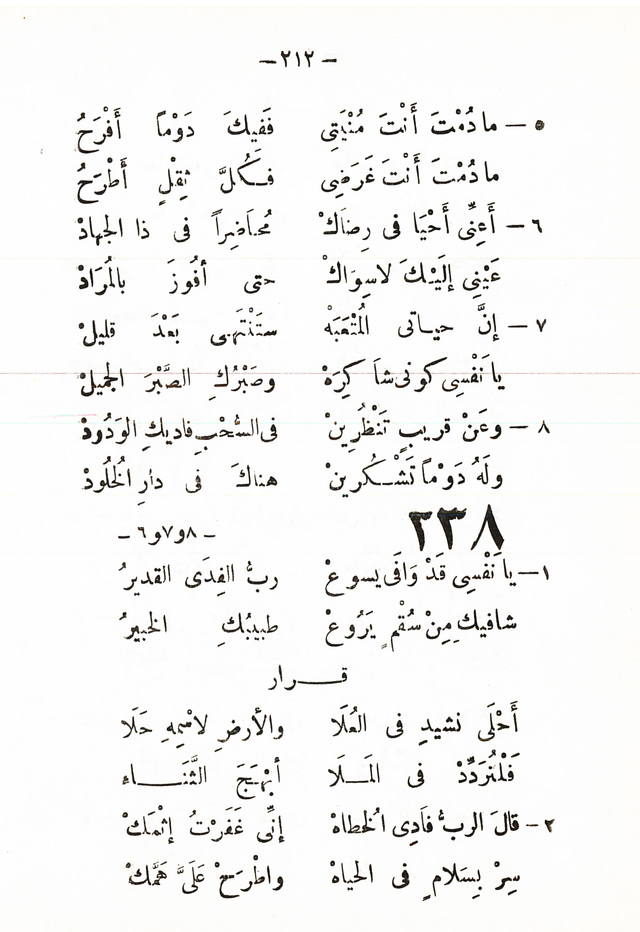 – ٢١٢ –
٥ – ما دُمْتَ أَنْتَ مُنْيَتِي فَفيكَ دَوْماً أَفْرَحُ
ما دُمْتَ أَنْتَ غَرَضِى فَكُلَّ ثِقْلٍ أَطْرَحُ
٦ – أَعِنِّى أَحْيَا فى رِضَاكْ مُحَاضِراً فى ذا الجهادْ
عَيْنِى إلَيْكَ لا سِوَاكْ حتى أفُوزَ بالمُرَادْ
٧ – إنَّ حياتى المُتْعَبَهْ ستَنْتَهِى بَعْدَ قليلْ
يا نَفْسِى كونى شاكِرَهْ وصَبْرُكِ الصَّبْرَ الجميلْ
٨ – وعَنْ قريبٍ تَنْظُرِينْ فى السُّحْبِ فاديكِ الوَدُودْ
ولَهُ دَوْماً تَشْكُرينْ هناكَ فى دارِ الخُلُودْ
٢٣٨
– ٨و٧و٦ –
١ – يا نَفْسِى قَدْ وَافَى يسوعْ ربُّ الفِدَى القديرُ
شافيكِ مِنْ سُقْمٍ يَرُوعْ طبيبُكِ الخبيرُ
قرار
أَحْلَى نشيدٍ فى العُلَا والأرضِ لاسْمِهِ حَلَا
فَلْنُرَدِّدْ فى المَلَا أبْهَجَ الثَّنَاءِ
٢ – قالَ الربُّ فَادِى الخطاهْ إنِّى غَفَرْتُ إثْمَكْ
سِرْ بِسَلامٍ فى الحياهْ واطْرَحْ عَلَىَّ هَمَّكْ